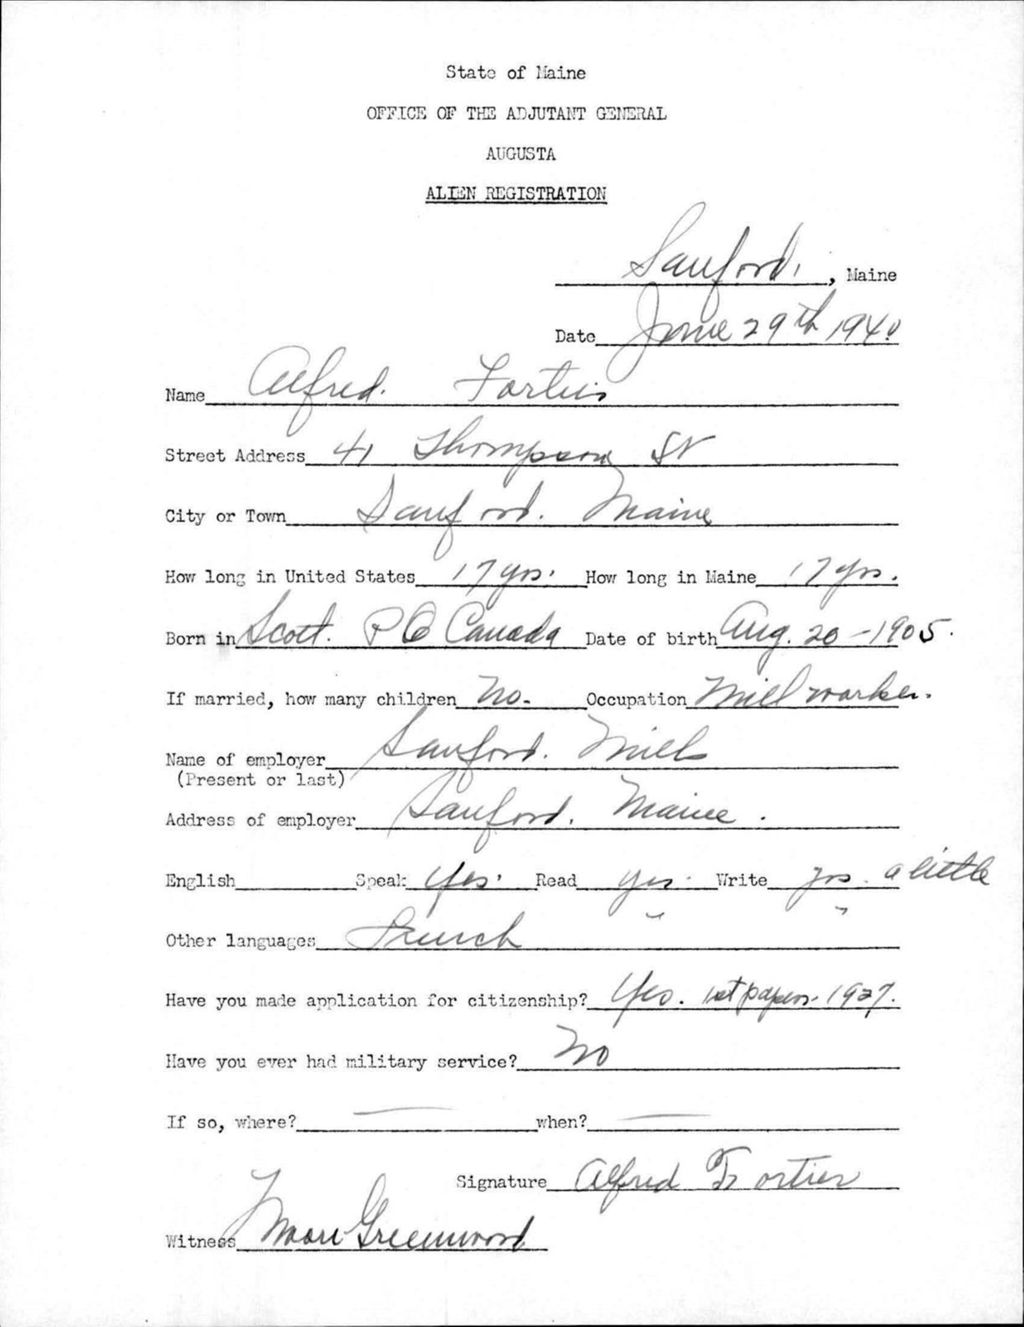 State of Maine
OFFICE OF THE ADJUTANT GENERAL
AUGUSTA
ALIEN REGISTRATION
Sanford, Maine
Date June 29th 1940
Name Alfred. Fortier
Street Address 41 Thompson St
City or Town Sanford. Maine
How long in United States 17 yrs. How long in Maine 17 yrs.
Born in Scott. P Q Canada Date of birth Aug. 20 - 1905.
If married, how many children No. Occupation Mill worker.
Name of employer Sanford. Mills
(Present or last)
Address of employer Sanford. Maine.
English Speak Yes. Read yes. Write yes. a little
Other languages French " "
Have you made application for citizenship? Yes. 1st papers. 1937.
Have you ever had military service? No
If so, where? — when? —
Signature Alfred Fortier
Witness Greenwood